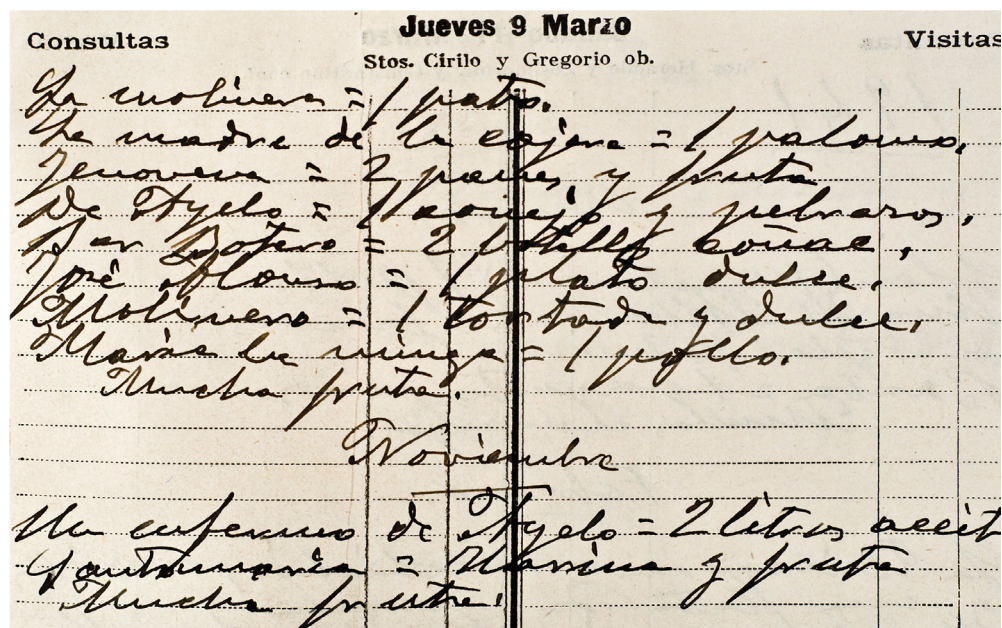 Jueves 9 Marzo
Consultas Visitas
Stos. Cirilo y Gregorio ob.
La molinera = 1 pato.
La madre de la cajera = 1 palomo.
Jenoveva = 2 panes y fruta
De Ayelo = 1 conejo y
= 2 botellas coñac.
José Alonso = 1 plato dulce.
Molinero = 1 tortada y dulce.
Maria la = 1 pollo.
Mucha fruta.
Noviembre
Un enfermo de Ayelo = 2 litros aceit
Santamaría = Harina y fruta
Mucha fruta.